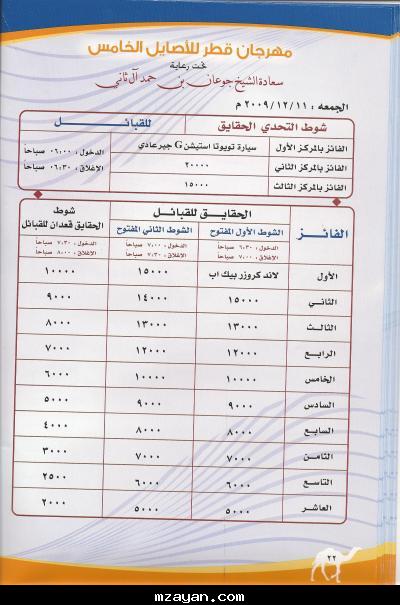 مهرجان قطر للأصايل الخامس
تحت رعاية
سعادة الشيخ جوعان بن حمد آل ثاني
الجمعه : ٢٠٠٩/١٢/١١ م
شوط التحدي الحقايق للقبائل
الفائز بالمركز الأول سيارة تويوتا استيشن G جيرعادي الدخول : ٠٦:٠٠ صباحاً
الفائز بالمركز الثاني ٢٠٠٠٠ الإغلاق : ٠٦:٣٠ صباحاً
الفائز بالمركز الثالث ١٥٠٠٠
الفائز الحقايق للقبائل شوط الحقايق قعدان للقبائل
الشوط الأول المفتوح الشوط الثاني المفتوح
الدخول : ٦:٣٠ صباحاً الدخول : ٧:٠٠ صباحاً الدخول : ٧:٣٠ صباحاً
الإغلاق : ٧:٠٠ صباحاً الإغلاق : ٧:٣٠ صباحاً الإغلاق : ٨:٠٠ صباحاً
الأول لاند كروزر بيك اب ١٥٠٠٠ ١٠٠٠٠
الثاني ١٥٠٠٠ ١٤٠٠٠ ٩٠٠٠
الثالث ١٣٠٠٠ ١٣٠٠٠ ٨٠٠٠
الرابع ١٢٠٠٠ ١٢٠٠٠ ٧٠٠٠
الخامس ١٠٠٠٠ ١٠٠٠٠ ٦٠٠٠
السادس ٩٠٠٠ ٩٠٠٠ ٥٠٠٠
السابع ٨٠٠٠ ٨٠٠٠ ٤٠٠٠
الثامن ٧٠٠٠ ٧٠٠٠ ٣٠٠٠
التاسع ٦٠٠٠ ٦٠٠٠ ٢٥٠٠
العاشر ٥٠٠٠ ٥٠٠٠ ٢٠٠٠
٢٢
mzayan.com